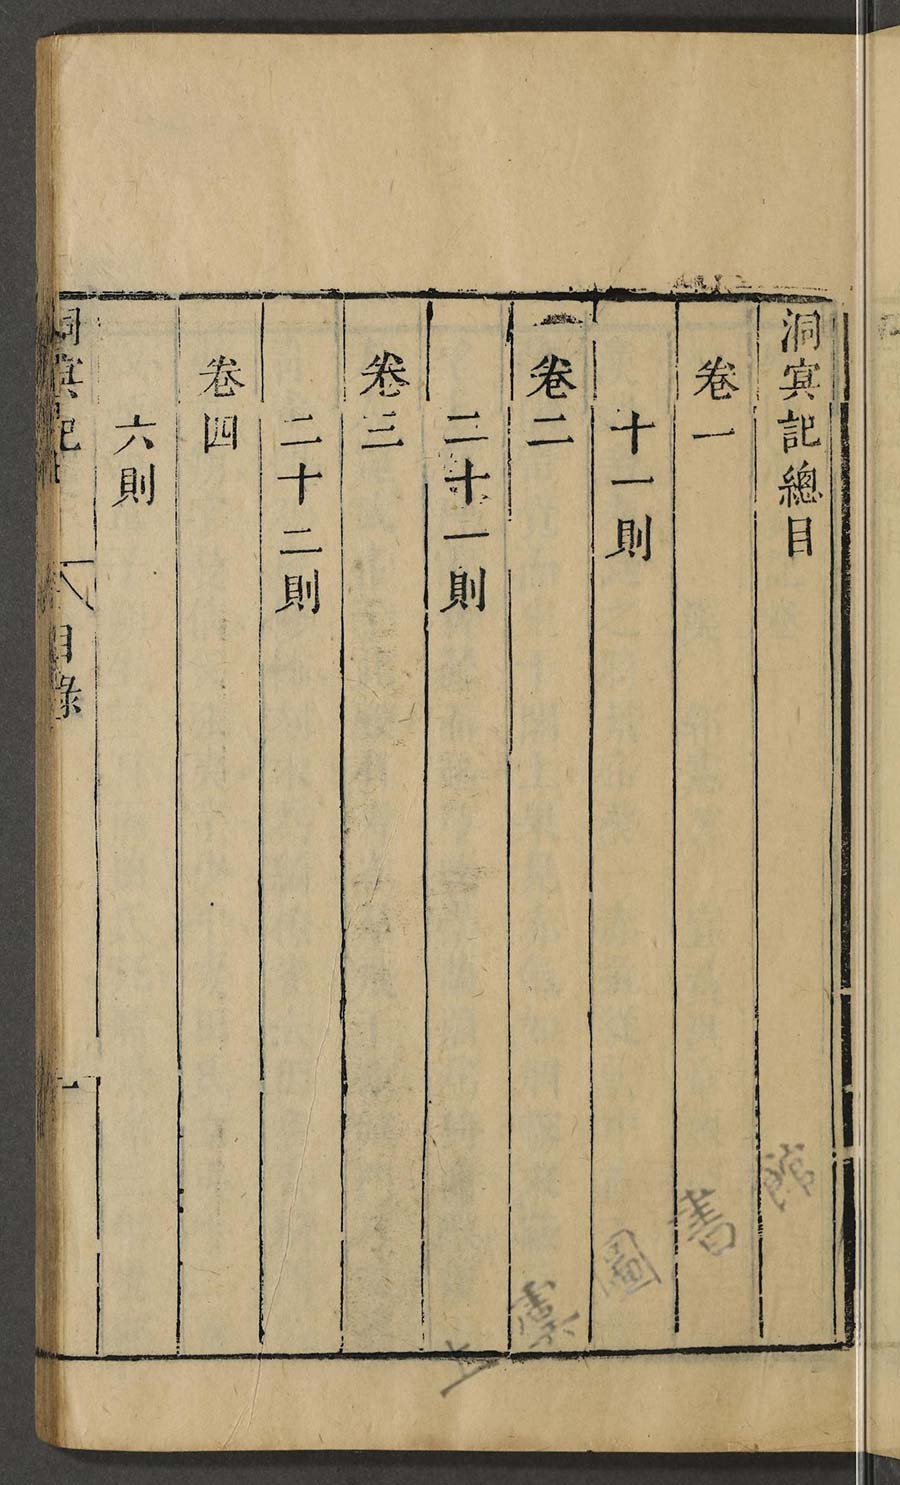 洞冥記總目
卷一
十一則
卷二
二十一則
卷三
二十二則
卷四
六則
洞冥記
目錄
一
上虞圖書館